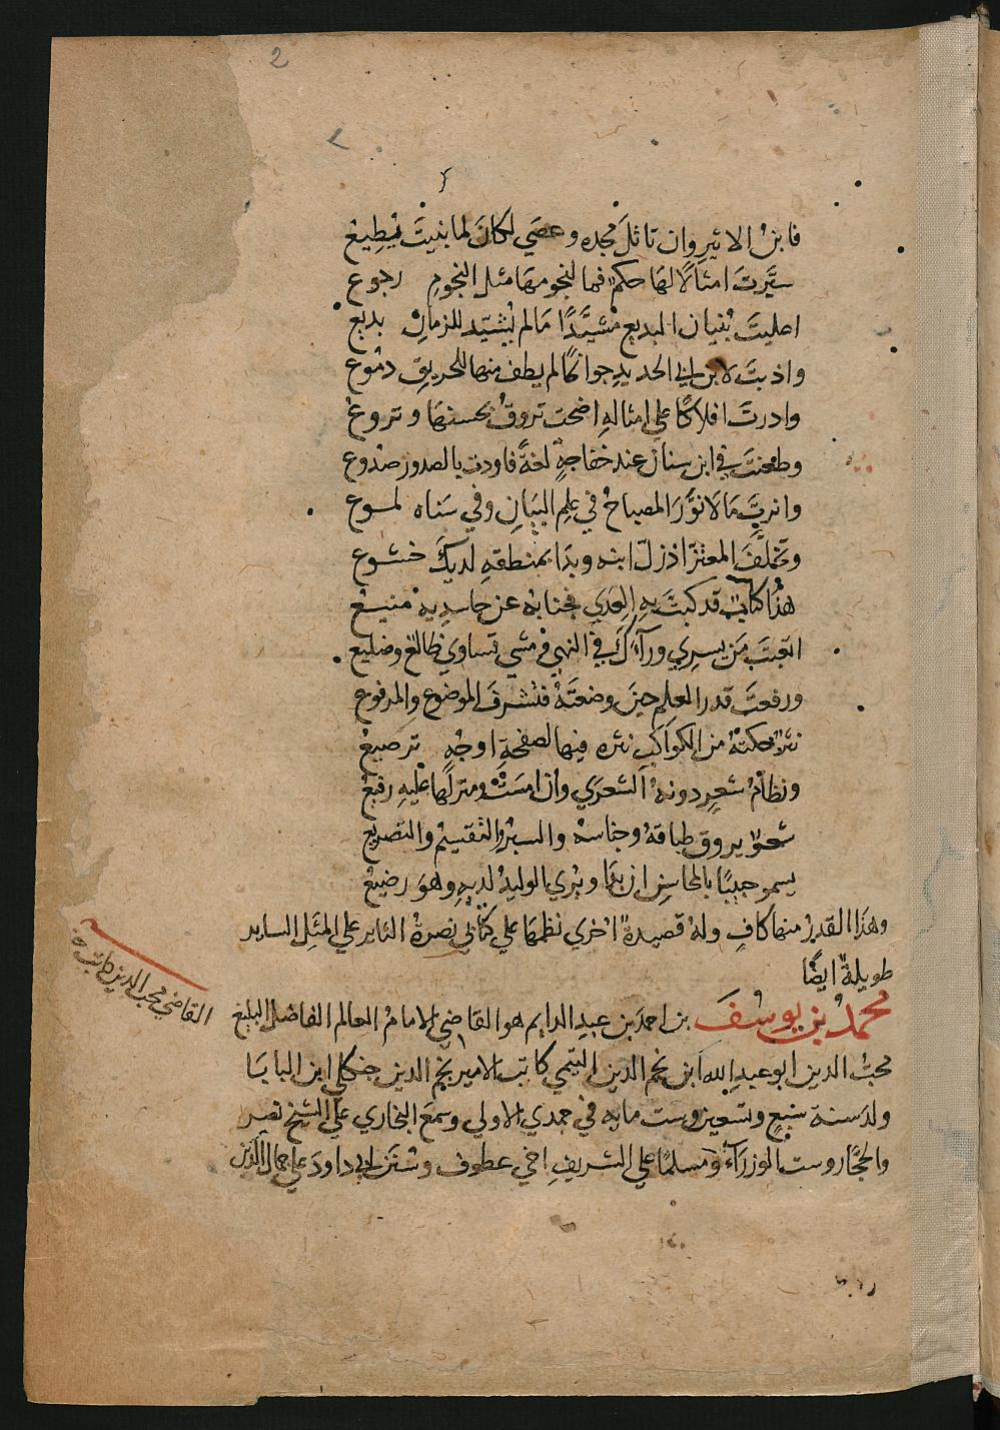 2
فابن الاثير وان تاثل مجده وعصي لكان لما بنيت يطيع
سيّرت امثالا لها حكم فما لنجومها مثل النجوم رجوع
اعليت بنيان البديع مشيّدا ما لم يشيد للزمان بديع
واذبت لابن ابي الحديد جوانحا لم يطف منها للحريق دموع
وادرت افلاكا علي امثاله اضحت تروق بحسنها وتروع
وطعنت في ابن سنان عند خفاجة لغة فاودت بالصدور صدوع
وانرت ما لا نوّر المصباح في علم البيان وفي سناه لموع
وتخلف المعتز اذ زل ابنه وبدا بمنطقه لديك خشوع
هذا كتاب قد كبت به العدي فجنابه عن حاسديه منيع
اتعبت من يسري وراءك في النهي فمشي تساوي ظالع وضليع
ورفعت قدر العلم حين وضعته فتشرف الموضوع والمرفوع
نثر حكته من الكواكب نثره فيها لصفحة اوجه ترصيع
ونظام شعر دونه الشعري وان امست ومنزلها عليه رفيع
شعر يروق طباقه وجناسه والسبر والتقسيم والتصريع
يسمو حبيبا بالمحاسن ان بدا ويري الوليد لديه وهو رضيع
وهذا القدر منها كاف وله قصيدة اخري نظمها علي كتابي نصرة الثاير علي المثل الساير
طويلة ايضا
محمد بن يوسف بن احمد بن عبد الدايم هو القاضي الامام العالم الفاضل البليغ
محب الدين ابو عبد الله ابن نجم الدين التيمي كاتب الامير نجم الدين جنكلي ابن البابا
ولد سنة سبع وتسعين وست مايه في جمدي الاولي وسمع البخاري علي الشيخ نصر
والحجار وست الوزراء ومسلما علي الشريف اخي عطوف وسنن ابي داود علي جمال الدين
القاضي محب الدين كاتب